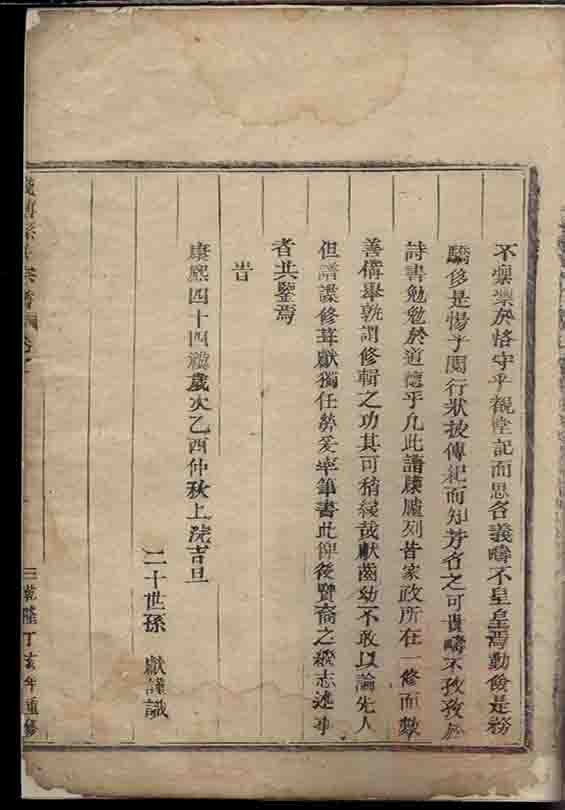 不懍懍於恪守乎覩堂記而思各義疇不皇皇焉勤儉是務
驕侈是惕乎閱行狀披傳紀而知芳名之可貴疇不孜孜於
詩書勉勉於道德乎凡此譜牒臚列皆家政所在一修而數
善俱舉孰謂修輯之功其可稍緩哉獻齒幼不敢以論先人
但譜諜修葺獻獨任勞爰率筆書此俾後賢裔之繼志述事
者共鑒焉
旹
康熙四十四禩歲次乙酉仲秋上浣吉旦
二十世孫 獻謹識
乾隆丁亥年重修